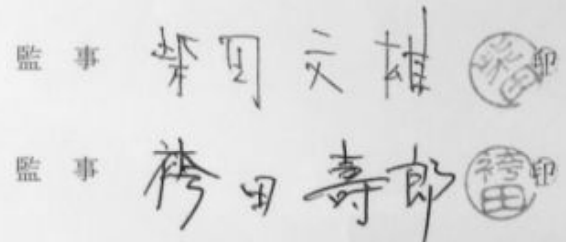 監事 柴田文雄 柴田 ㊞
監事 袴田寿郎 袴田 ㊞